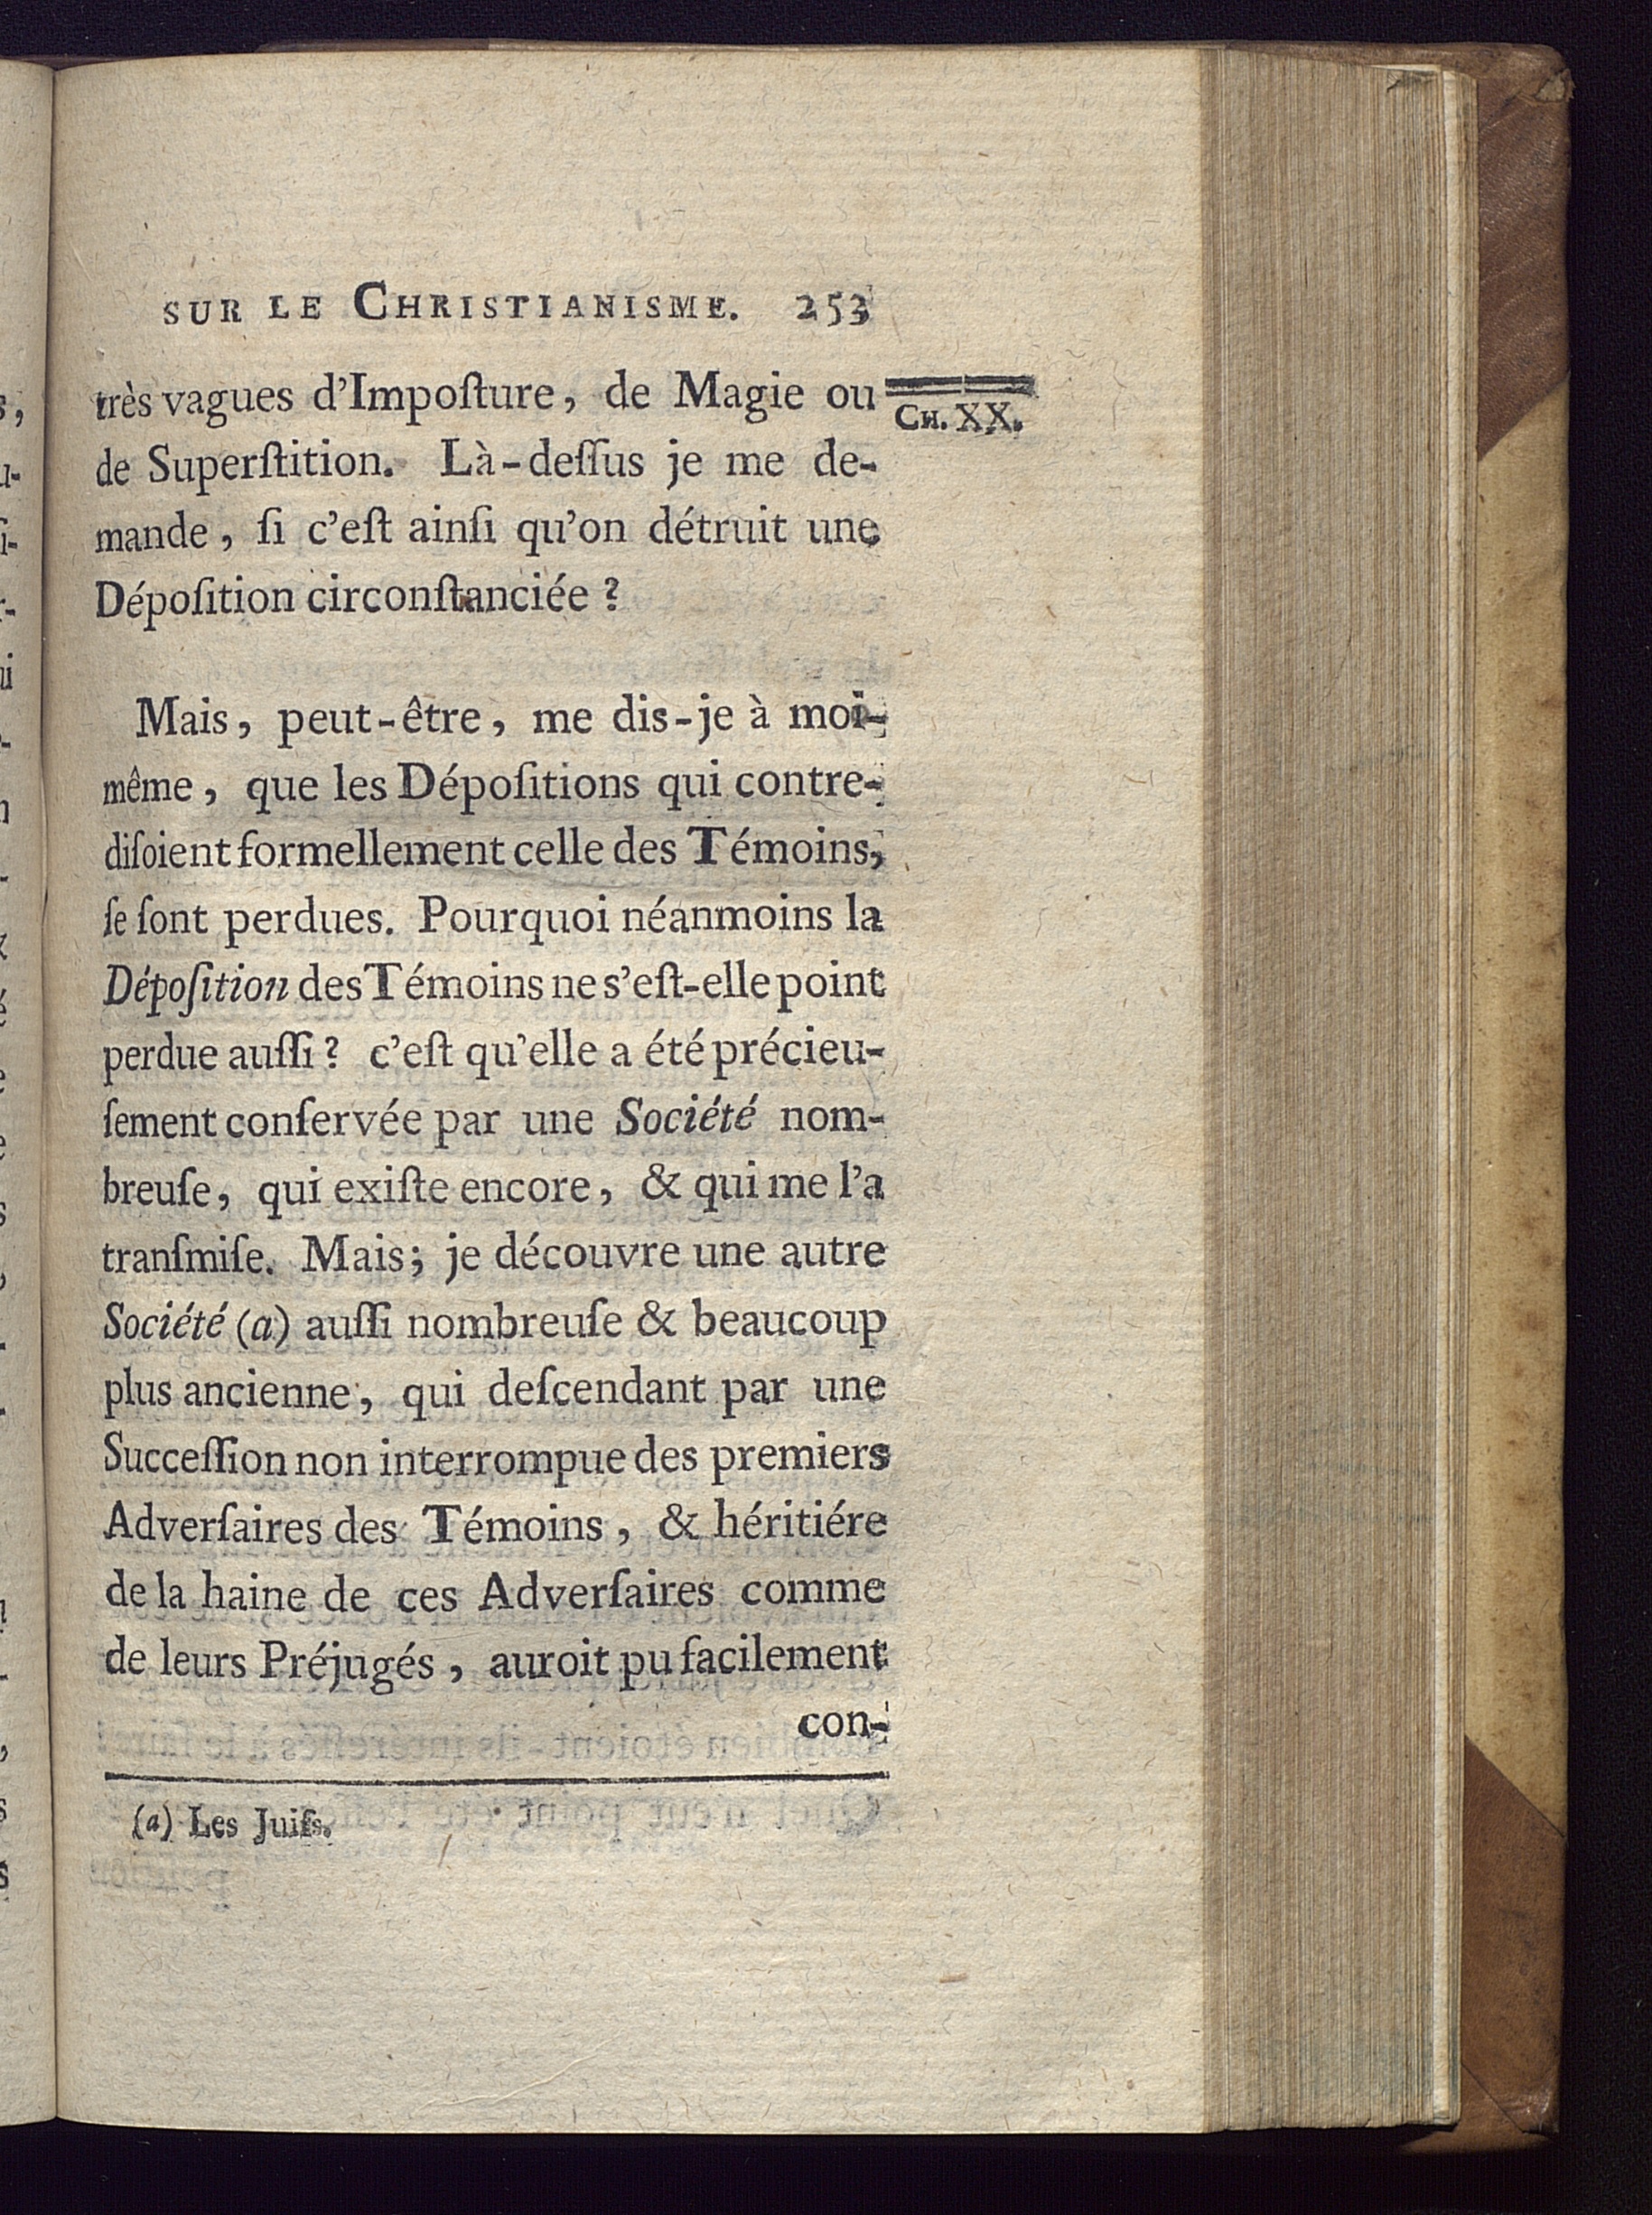 SUR LE CHRISTIANISME. 253
très vagues d'Impoſture, de Magie ou
CH. XX.
de Superſtition. Là-deſſus je me de-
mande, ſi c'eſt ainſi qu'on détruit une
Dépoſition circonſtanciée?
Mais, peut-être, me dis-je à moi-
même, que les Dépoſitions qui contre-
diſoient formellement celle des Témoins,
ſe ſont perdues. Pourquoi néanmoins la
Dépoſition des Témoins ne s'eſt-elle point
perdue auſſi? c'eſt qu'elle a été précieu-
ſement conſervée par une Société nom-
breuſe, qui exiſte encore, & qui me l'a
tranſmiſe. Mais; je découvre une autre
Société (a) auſſi nombreuſe & beaucoup
plus ancienne, qui deſcendant par une
Succeſſion non interrompue des premiers
Adverſaires des Témoins, & héritiére
de la haine de ces Adverſaires comme
de leurs Préjugés, auroit pu facilement
con-
(a) Les Juifs.